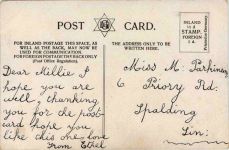 POST CARD.
FOR INLAND POSTAGE THIS SPACE, AS
WELL AS THE BACK, MAY NOW BE
USED FOR COMMUNICATION.
FOR FOREIGN POSTAGE THIS BACK ONLY
(Post Office Regulation).
THE ADDRESS ONLY TO BE
WRITTEN HERE.
INLAND
STAMP.
FOREIGN
Dear Millie I
hope you are
well, thanking
you for the post-
card hope you
like this one love
from Ethel
Miss M. Parkinson
6 Priory Rd.
Spalding
Lin: